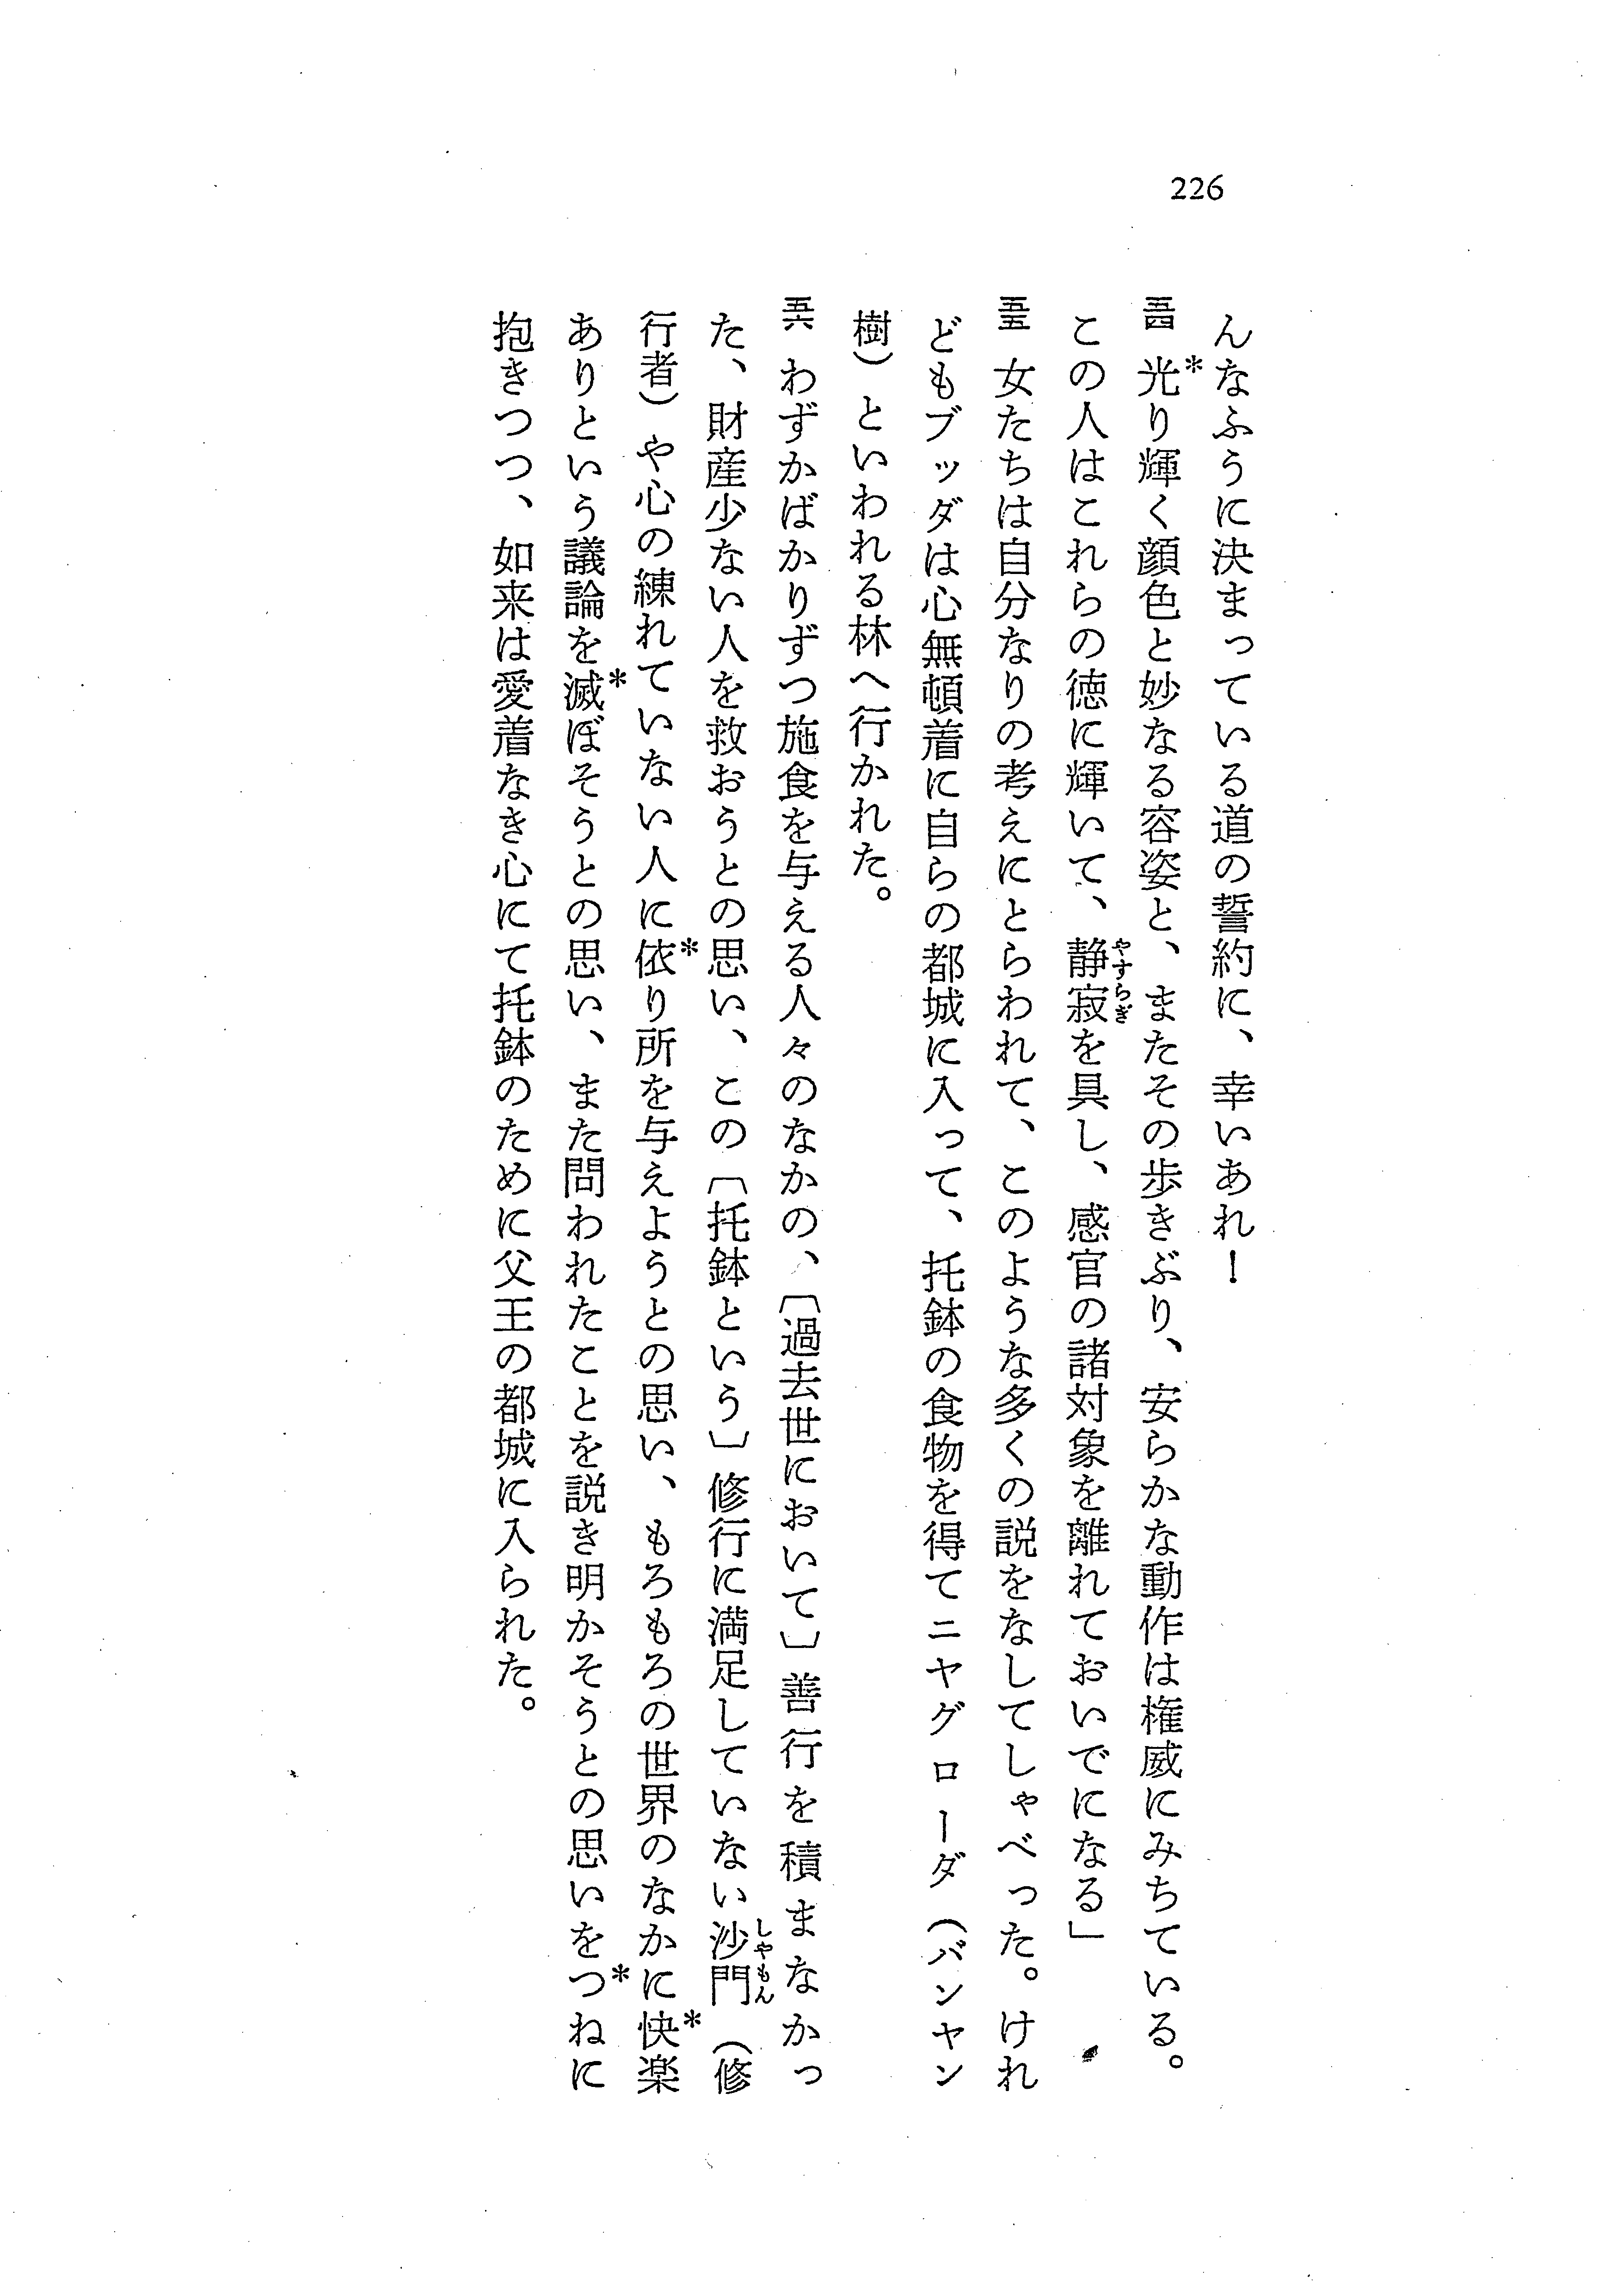 226
んなふうに決まっている道の誓約に、幸いあれ！
五四 光*り輝く顔色と妙なる容姿と、またその歩きぶり、安らかな動作は権威にみちている。
この人はこれらの徳に輝いて、静寂やすらぎを具し、感官の諸対象を離れておいでになる」
五五 女たちは自分なりの考えにとらわれて、このような多くの説をなしてしゃべった。けれ
どもブッダは心無頓着に自らの都城に入って、托鉢の食物を得てニヤグローダ（バンヤン
樹）といわれる林へ行かれた。
五六 わずかばかりずつ施食を与える人々のなかの、〔過去世において〕善行を積まなかっ
た、財産少ない人を救おうとの思い、この〔托鉢という〕修行に満足していない沙門しゃもん（修
行者）や心の練れていない人に依*り所を与えようとの思い、もろもろの世界のなかに快*楽
ありという議論を滅*ぼそうとの思い、また問われたことを説き明かそうとの思いをつ*ねに
抱きつつ、如来は愛着なき心にて托鉢のために父王の都城に入られた。